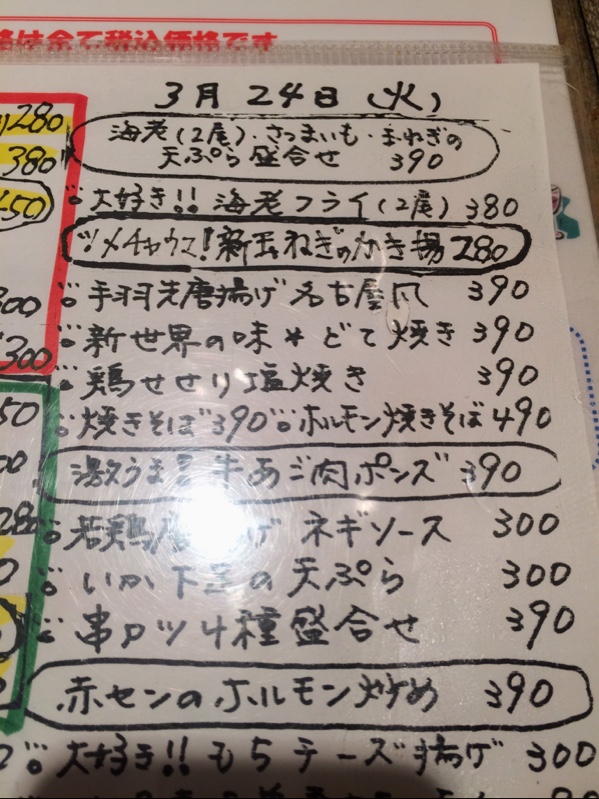 格は全て税込価格です
3月24日(火)
280
380
450
300
300
50
海老(2尾)・さつまいも・玉ねぎの
天ぷら盛合せ 390
大好き!!海老フライ(2尾) 380
ツメチャウマ!新玉ねぎのかき揚 280
手羽先唐揚げ名古屋風 390
新世界の味*どて焼き 390
鶏せせり塩焼き 390
焼きそば390 ホルモン焼きそば490
激うま 牛あご肉ポンズ 390
若鶏唐揚げ ネギソース 300
いか下足の天ぷら 300
串カツ4種盛合せ 390
赤センのホルモン炒め 390
大好き!!もちチーズ揚げ 300